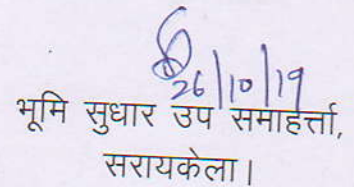 26/10/19
भूमि सुधार उप समाहर्त्ता,
सरायकेला।